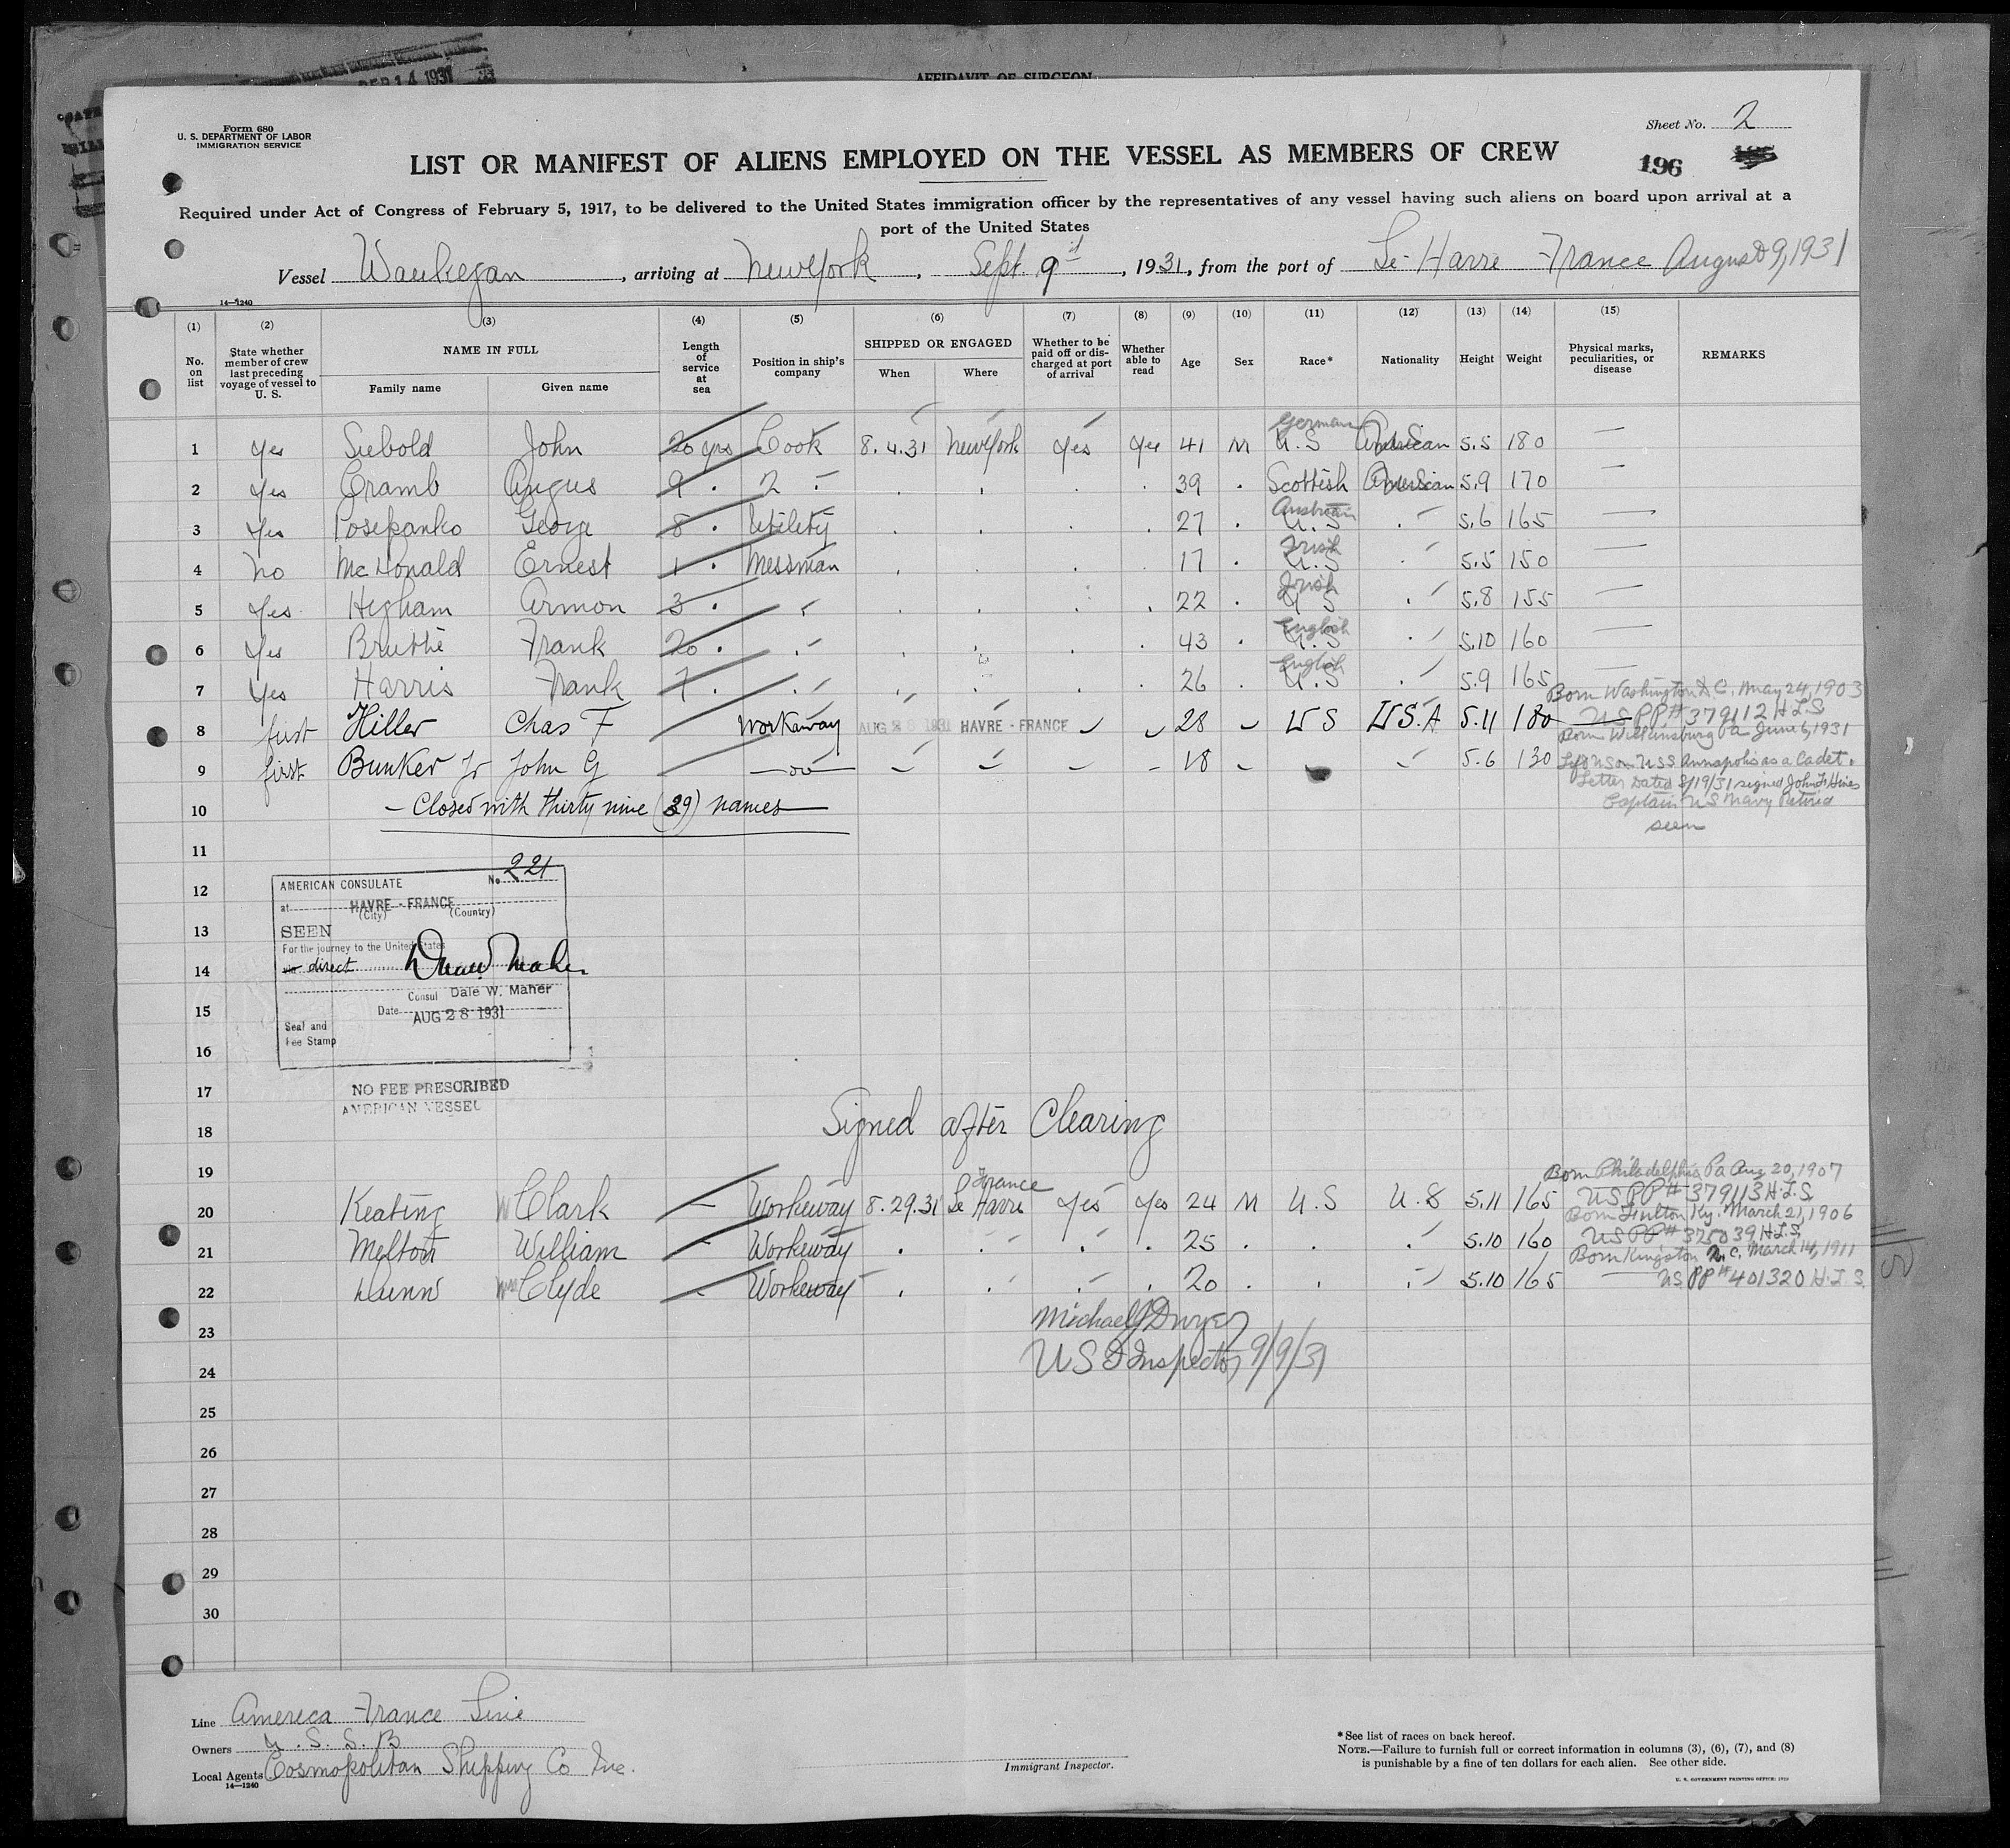 AFFIDAVIT OF SURGEON
SEP 14 1931
Form 680
U. S. DEPARTMENT OF LABOR
IMMIGRATION SERVICE
Sheet No. 2
LIST OR MANIFEST OF ALIENS EMPLOYED ON THE VESSEL AS MEMBERS OF CREW
196
Required under Act of Congress of February 5, 1917, to be delivered to the United States immigration officer by the representatives of any vessel having such aliens on board upon arrival at a
port of the United States
Vessel Waukegan, arriving at New York, Sept 9th, 1931, from the port of Le-Havre France August 29, 1931
14-1240
(1) (2) (3) (4) (5) (6) (7) (8) (9) (10) (11) (12) (13) (14) (15)
No. on list
State whether member of crew last preceding voyage of vessel to U. S.
NAME IN FULL
Family name Given name
Length of service at sea
Position in ship's company
SHIPPED OR ENGAGED
When Where
Whether to be paid off or discharged at port of arrival
Whether able to read
Age
Sex
Race*
Nationality
Height
Weight
Physical marks, peculiarities, or disease
REMARKS
German
1 Yes Siebold John 20 yrs Cook 8.4.31 New York Yes Yes 41 M U.S American 5.5 180 —
2 Yes Cramb Angus 9 . 2 . . . . 39 . Scottish American 5.9 170 —
Austrian
3 Yes Posepanko George 8 . Utility . . . . 27 . U.S . 5.6 165 —
Irish
4 No McDonald Ernest 1 . Messman . . . . 17 . U.S . 5.5 150 —
Irish
5 Yes Higham Armon 3 . . . . . . 22 . U S . 5.8 155 —
English
6 Yes Bruthe Frank 20 . . . . . . 43 . U.S . 5.10 160 —
English
7 Yes Harris Frank 7 . . . . . . 26 . U.S . 5.9 165 —
Born Washington D.C. May 24, 1903
8 first Hiller Chas F workaway AUG 28 1931 HAVRE - FRANCE 28 U S U.S.A 5.11 180 US PP# 379112 H.I.S
Born Wilkinsburg Pa June 6, 1931
9 first Bunker Jr John G —oo— 18 5.6 130 USS Annapolis as a Cadet.
Letter Dated 8/19/31 signed John F. Hines
Captain U S Navy Retired
seen
10 — Closed with thirty nine (39) names —
11
12
13
14
15
16
17
AMERICAN CONSULATE No 221
at HAVRE - FRANCE
(City) (Country)
SEEN
For the journey to the United States
via direct
Consul Dale W. Maher
Date AUG 28 1931
Seal and
Fee Stamp
NO FEE PRESCRIBED
AMERICAN VESSEL
18 Signed after Clearing
19
Born Philadelphia Pa Aug 20, 1907
France
20 Keating W Clark — Workeway 8.29.31 Le Havre Yes Yes 24 M U.S U.S 5.11 165 US PP# 379113 H.I.S.
Born Fulton Ky. March 21, 1906
21 Melton William — Workeway . . . . 25 . . . 5.10 160 US PP# 375039 H.I.S.
Born Kingston N.C. March 14, 1911
22 Dunn Wm Clyde — Workeway . . . . 20 . . . 5.10 165 — US PP# 401320 H.I.S.
23 Michael J Dwyer
24 U S I Inspector 9/9/31
25
26
27
28
29
30
Line America France Line
Owners U.S.S.B
Local Agents Cosmopolitan Shipping Co Inc.
14-1240
Immigrant Inspector.
*See list of races on back hereof.
NOTE.—Failure to furnish full or correct information in columns (3), (6), (7), and (8)
is punishable by a fine of ten dollars for each alien. See other side.
U. S. GOVERNMENT PRINTING OFFICE: